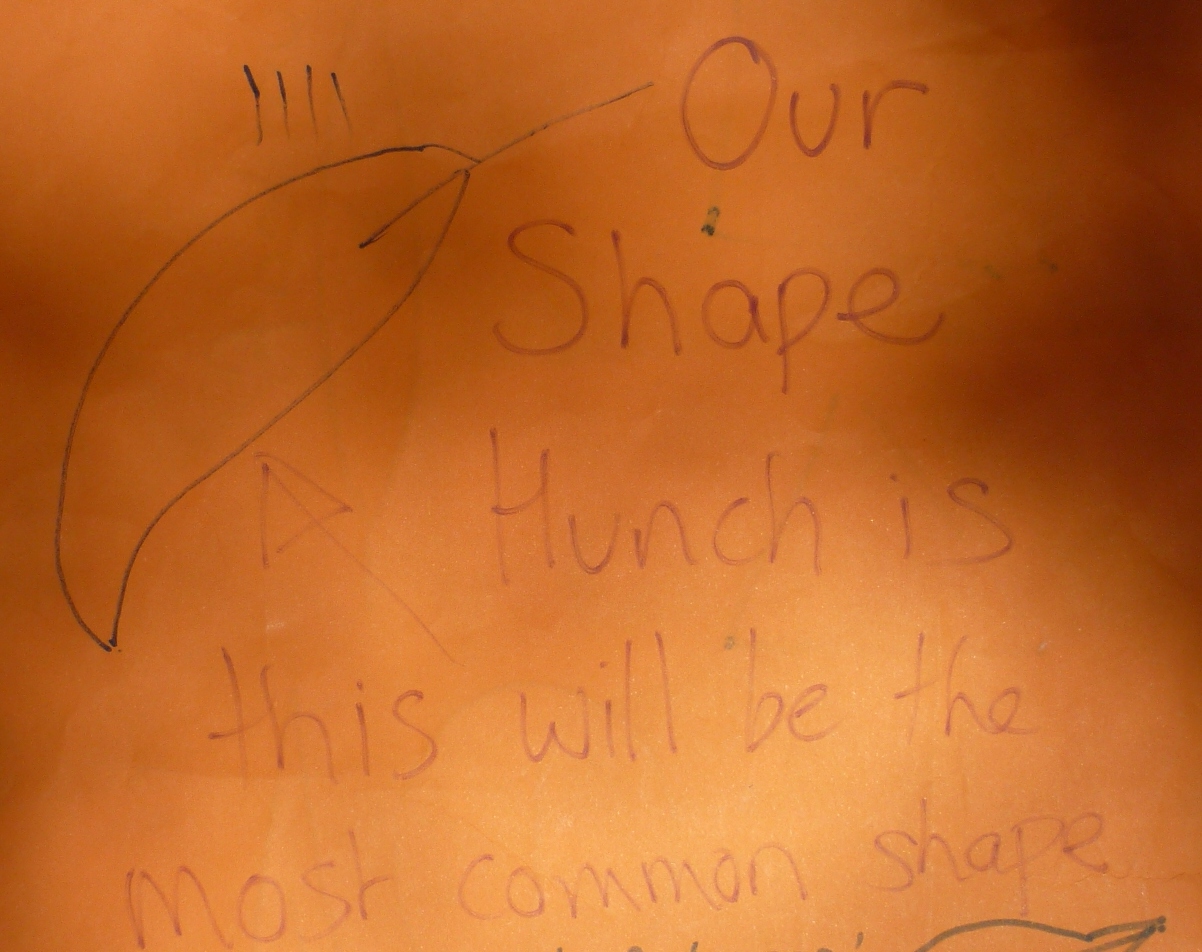 Our
Shape
Hunch is
this will be the
most common shape